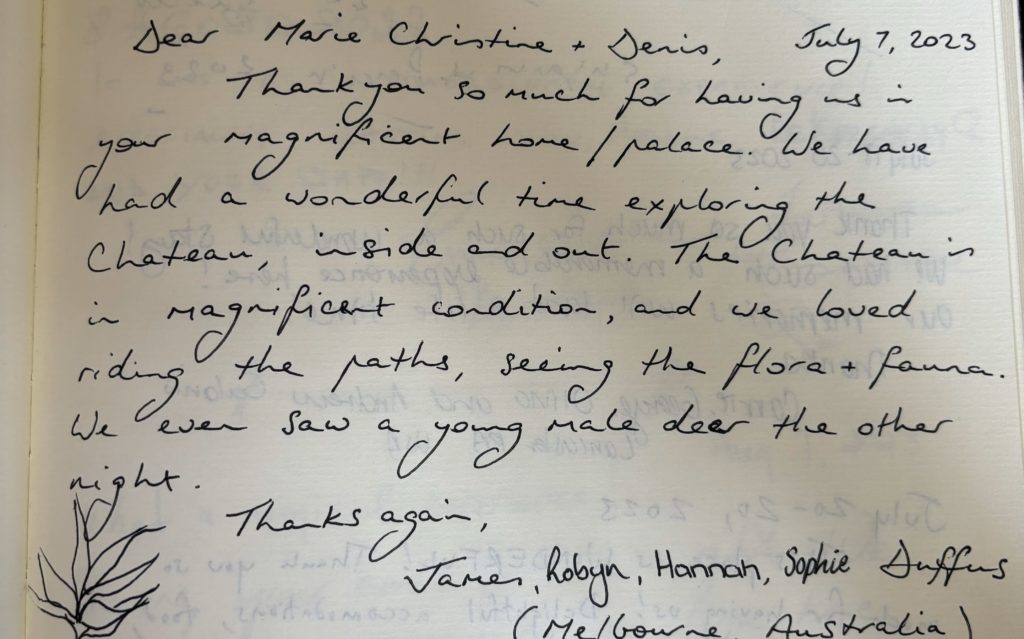 Dear Marie Christine + Denis, July 7, 2023
Thank you so much for having us in
your magnificent home / palace. We have
had a wonderful time exploring the
Chateau, inside and out. The Chateau is
in magnificent condition, and we loved
riding the paths, seeing the flora + fauna.
We even saw a young male deer the other
night.
Thanks again,
James, Robyn, Hannah, Sophie Duffus
(Melbourne, Australia)